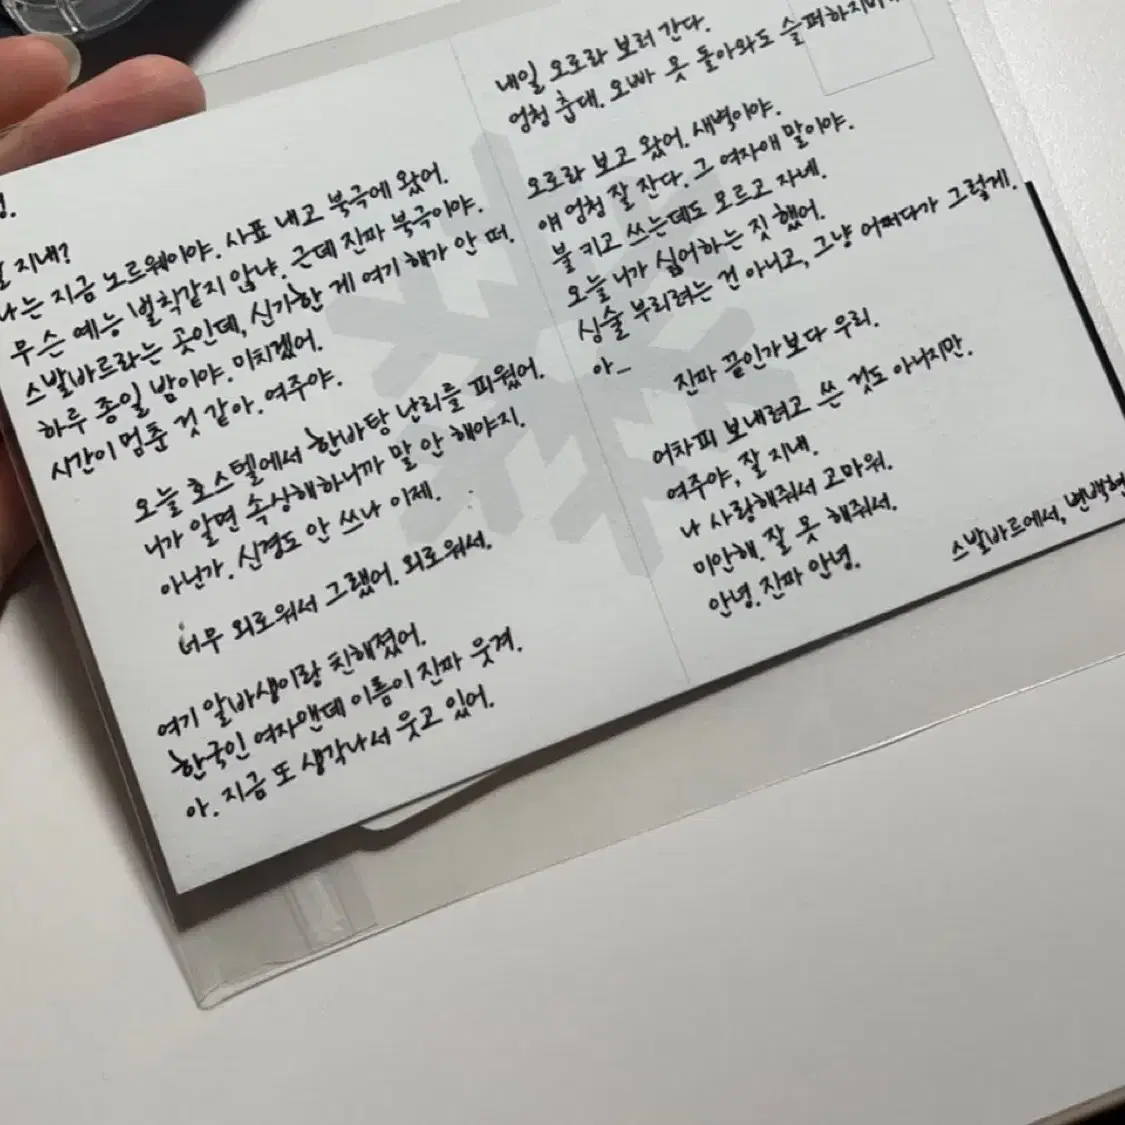 지내?
나는 지금 노르웨이야. 사표 내고 북극에 왔어.
무슨 예능 벌칙같지 않냐. 근데 진짜 북극이야.
스발바르라는 곳인데, 신기한 게 여기 해가 안 떠.
하루 종일 밤이야. 미치겠어.
시간이 멈춘 것 같아. 여주야.
오늘 호스텔에서 한바탕 난리를 피웠어.
니가 알면 속상해하니까 말 안 해야지.
아닌가. 신경도 안 쓰나 이제.
너무 외로워서 그랬어. 외로워서.
여기 알바생이랑 친해졌어.
한국인 여자앤데 이름이 진짜 웃겨.
아. 지금 또 생각나서 웃고 있어.
내일 오로라 보러 간다.
엄청 춥대. 오빠 못 돌아와도 슬퍼하지마
오로라 보고 왔어. 새벽이야.
얘 엄청 잘 잔다. 그 여자애 말이야.
불 키고 쓰는데도 모르고 자네.
오늘 니가 싫어하는 짓 했어.
심술 부리려는 건 아니고, 그냥 어쩌다가 그렇게.
아...
진짜 끝인가보다 우리.
어차피 보내려고 쓴 것도 아니지만.
여주야, 잘 지내.
나 사랑해줘서 고마워.
미안해. 잘 못 해줘서.
안녕. 진짜 안녕.
스발바르에서, 변백현